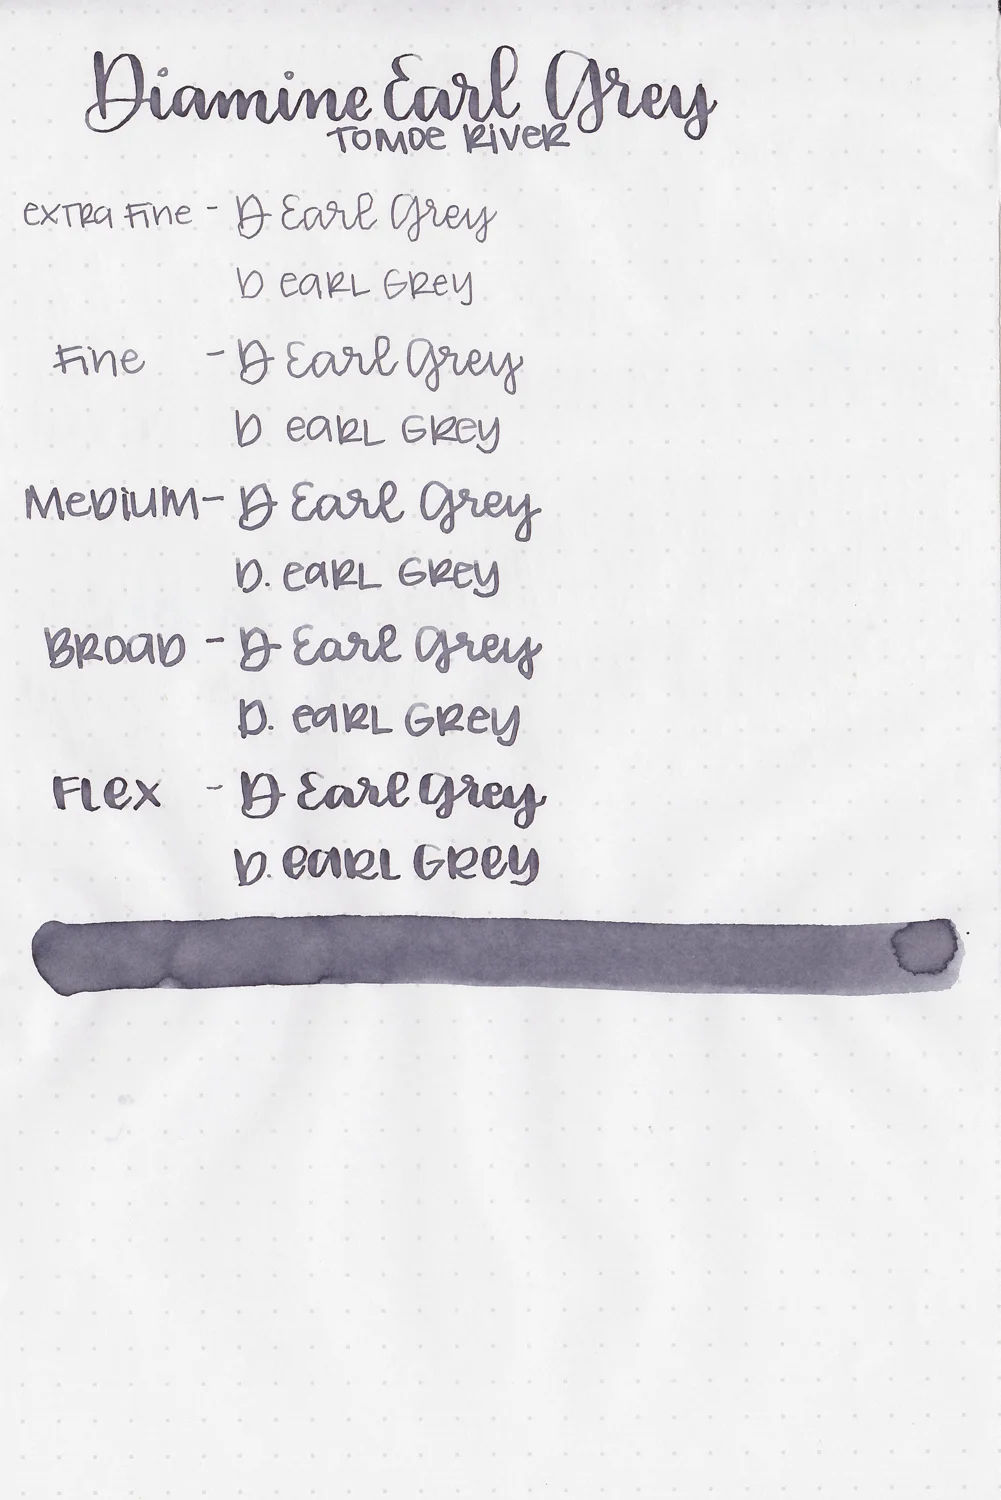 Diamine Earl Grey
TOMOE RIVER
EXTRA FINE - D Earl Grey
D EARL GREY
FINE - D Earl Grey
D EARL GREY
MEDIUM - D Earl Grey
D. EARL GREY
BROAD - D Earl Grey
D. EARL GREY
FLEX - D Earl Grey
D. EARL GREY